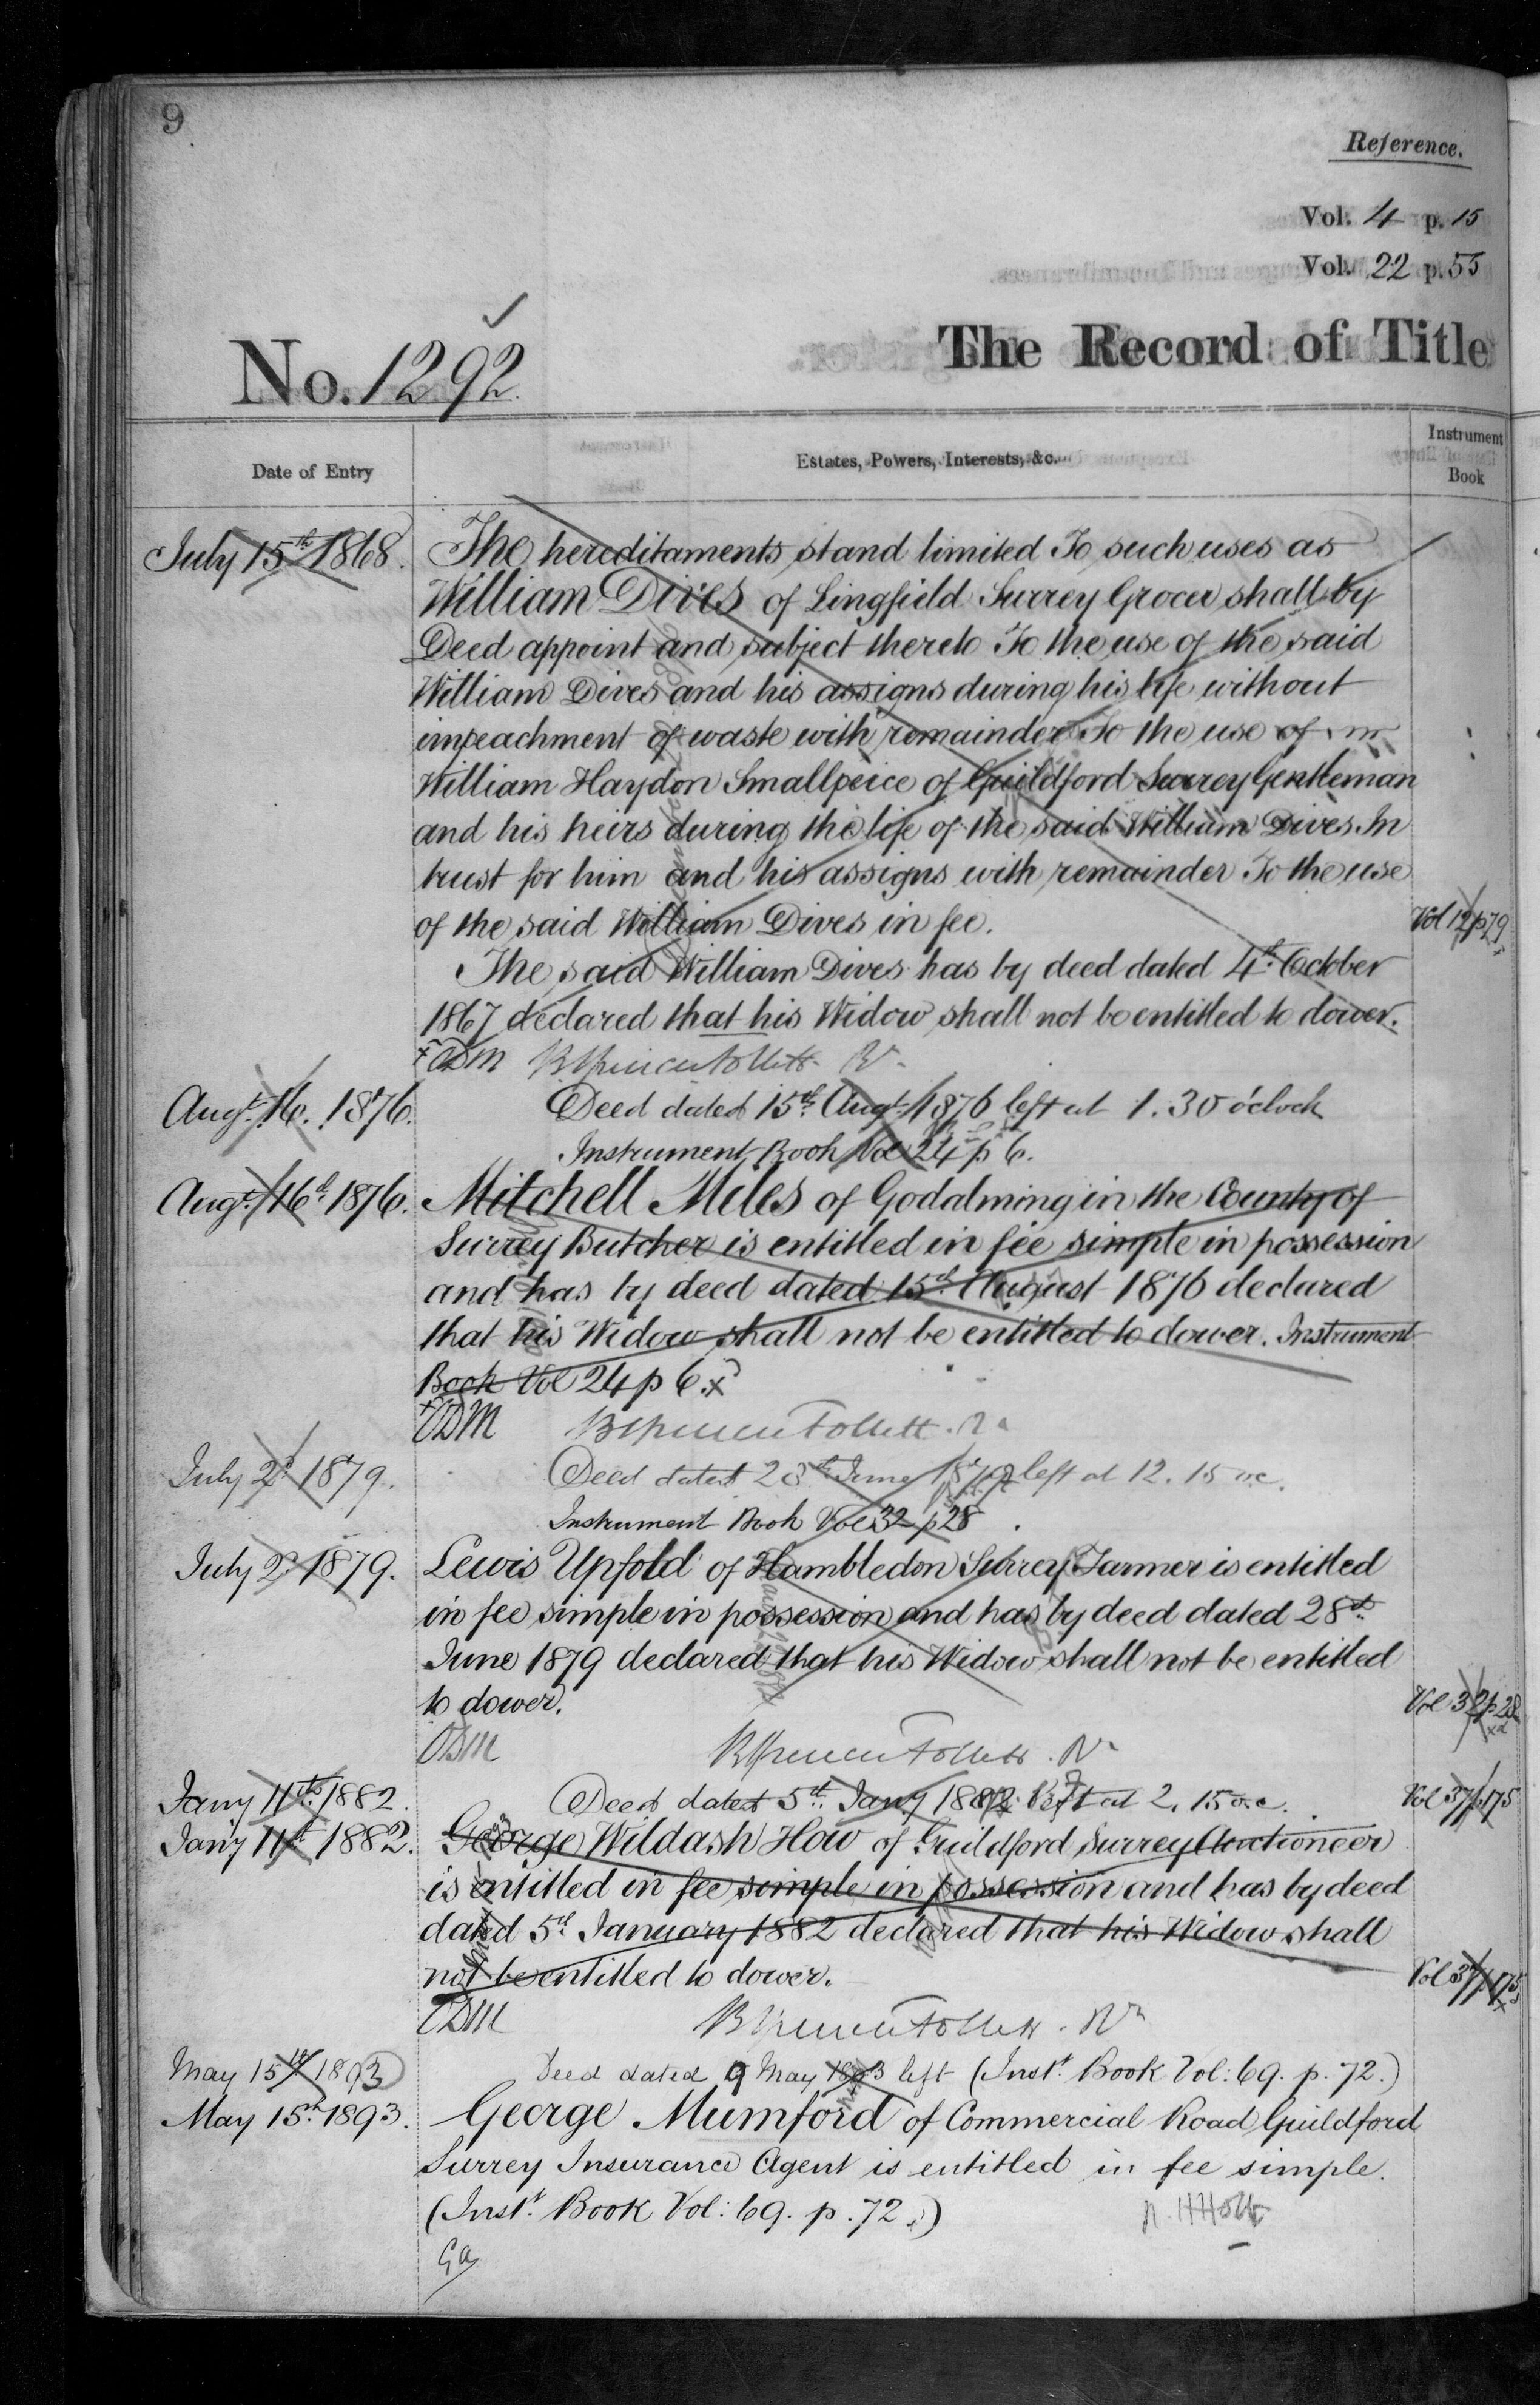 9
Reference.
Vol. 4 p. 15
Vol. 22 p. 55
No. 1292.
The Record of Title
Date of Entry
Estates, Powers, Interests, &c.
Instrument Book
July 15th 1868. The hereditaments stand limited To such uses as
William Dives of Lingfield Surrey Grocer shall by
Deed appoint and subject thereto To the use of the said
William Dives and his assigns during his life without
impeachment of waste with remainder To the use of
William Haydon Smallpeice of Guildford Surrey Gentleman
and his heirs during the life of the said William Dives In
trust for him and his assigns with remainder To the use
of the said William Dives in fee. Vol 12 p 79
The said William Dives has by deed dated 4th October
1867 declared that his Widow shall not be entitled to dower.
Augt. 16. 1876. Deed dated 15th Augt. 1876 left at 1.30 o'clock
Instrument Book Vol 24 p 6.
Augt. 16th 1876. Mitchell Miles of Godalming in the County of
Surrey Butcher is entitled in fee simple in possession
and has by deed dated 15th August 1876 declared
that his Widow shall not be entitled to dower. Instrument
Book Vol 24 p 6.
ODM
July 2d. 1879. Deed dated 28th June 1879 left at 12.15 oc.
Instrument Book Vol 32 p 28
July 2d. 1879. Lewis Upfold of Hambledon Surrey Farmer is entitled
in fee simple in possession and has by deed dated 28th
June 1879 declared that his Widow shall not be entitled
to dower. Vol 32 p 28
ODM
Jany 11th. 1882. Deed dated 5th. Jany 1882 left at 2.15 o.c. Vol 37 p 175
Jany 11th 1882. George Wildash How of Guildford Surrey Auctioneer
is entitled in fee simple in possession and has by deed
dated 5th January 1882 declared that his Widow shall
not be entitled to dower. Vol 37 p 175
ODM
May 15th 1893 Deed dated 9 May 1893 left (Inst. Book Vol: 69. p. 72.)
May 15th 1893. George Mumford of Commercial Road Guildford
Surrey Insurance Agent is entitled in fee simple.
(Inst. Book Vol: 69. p. 72.)